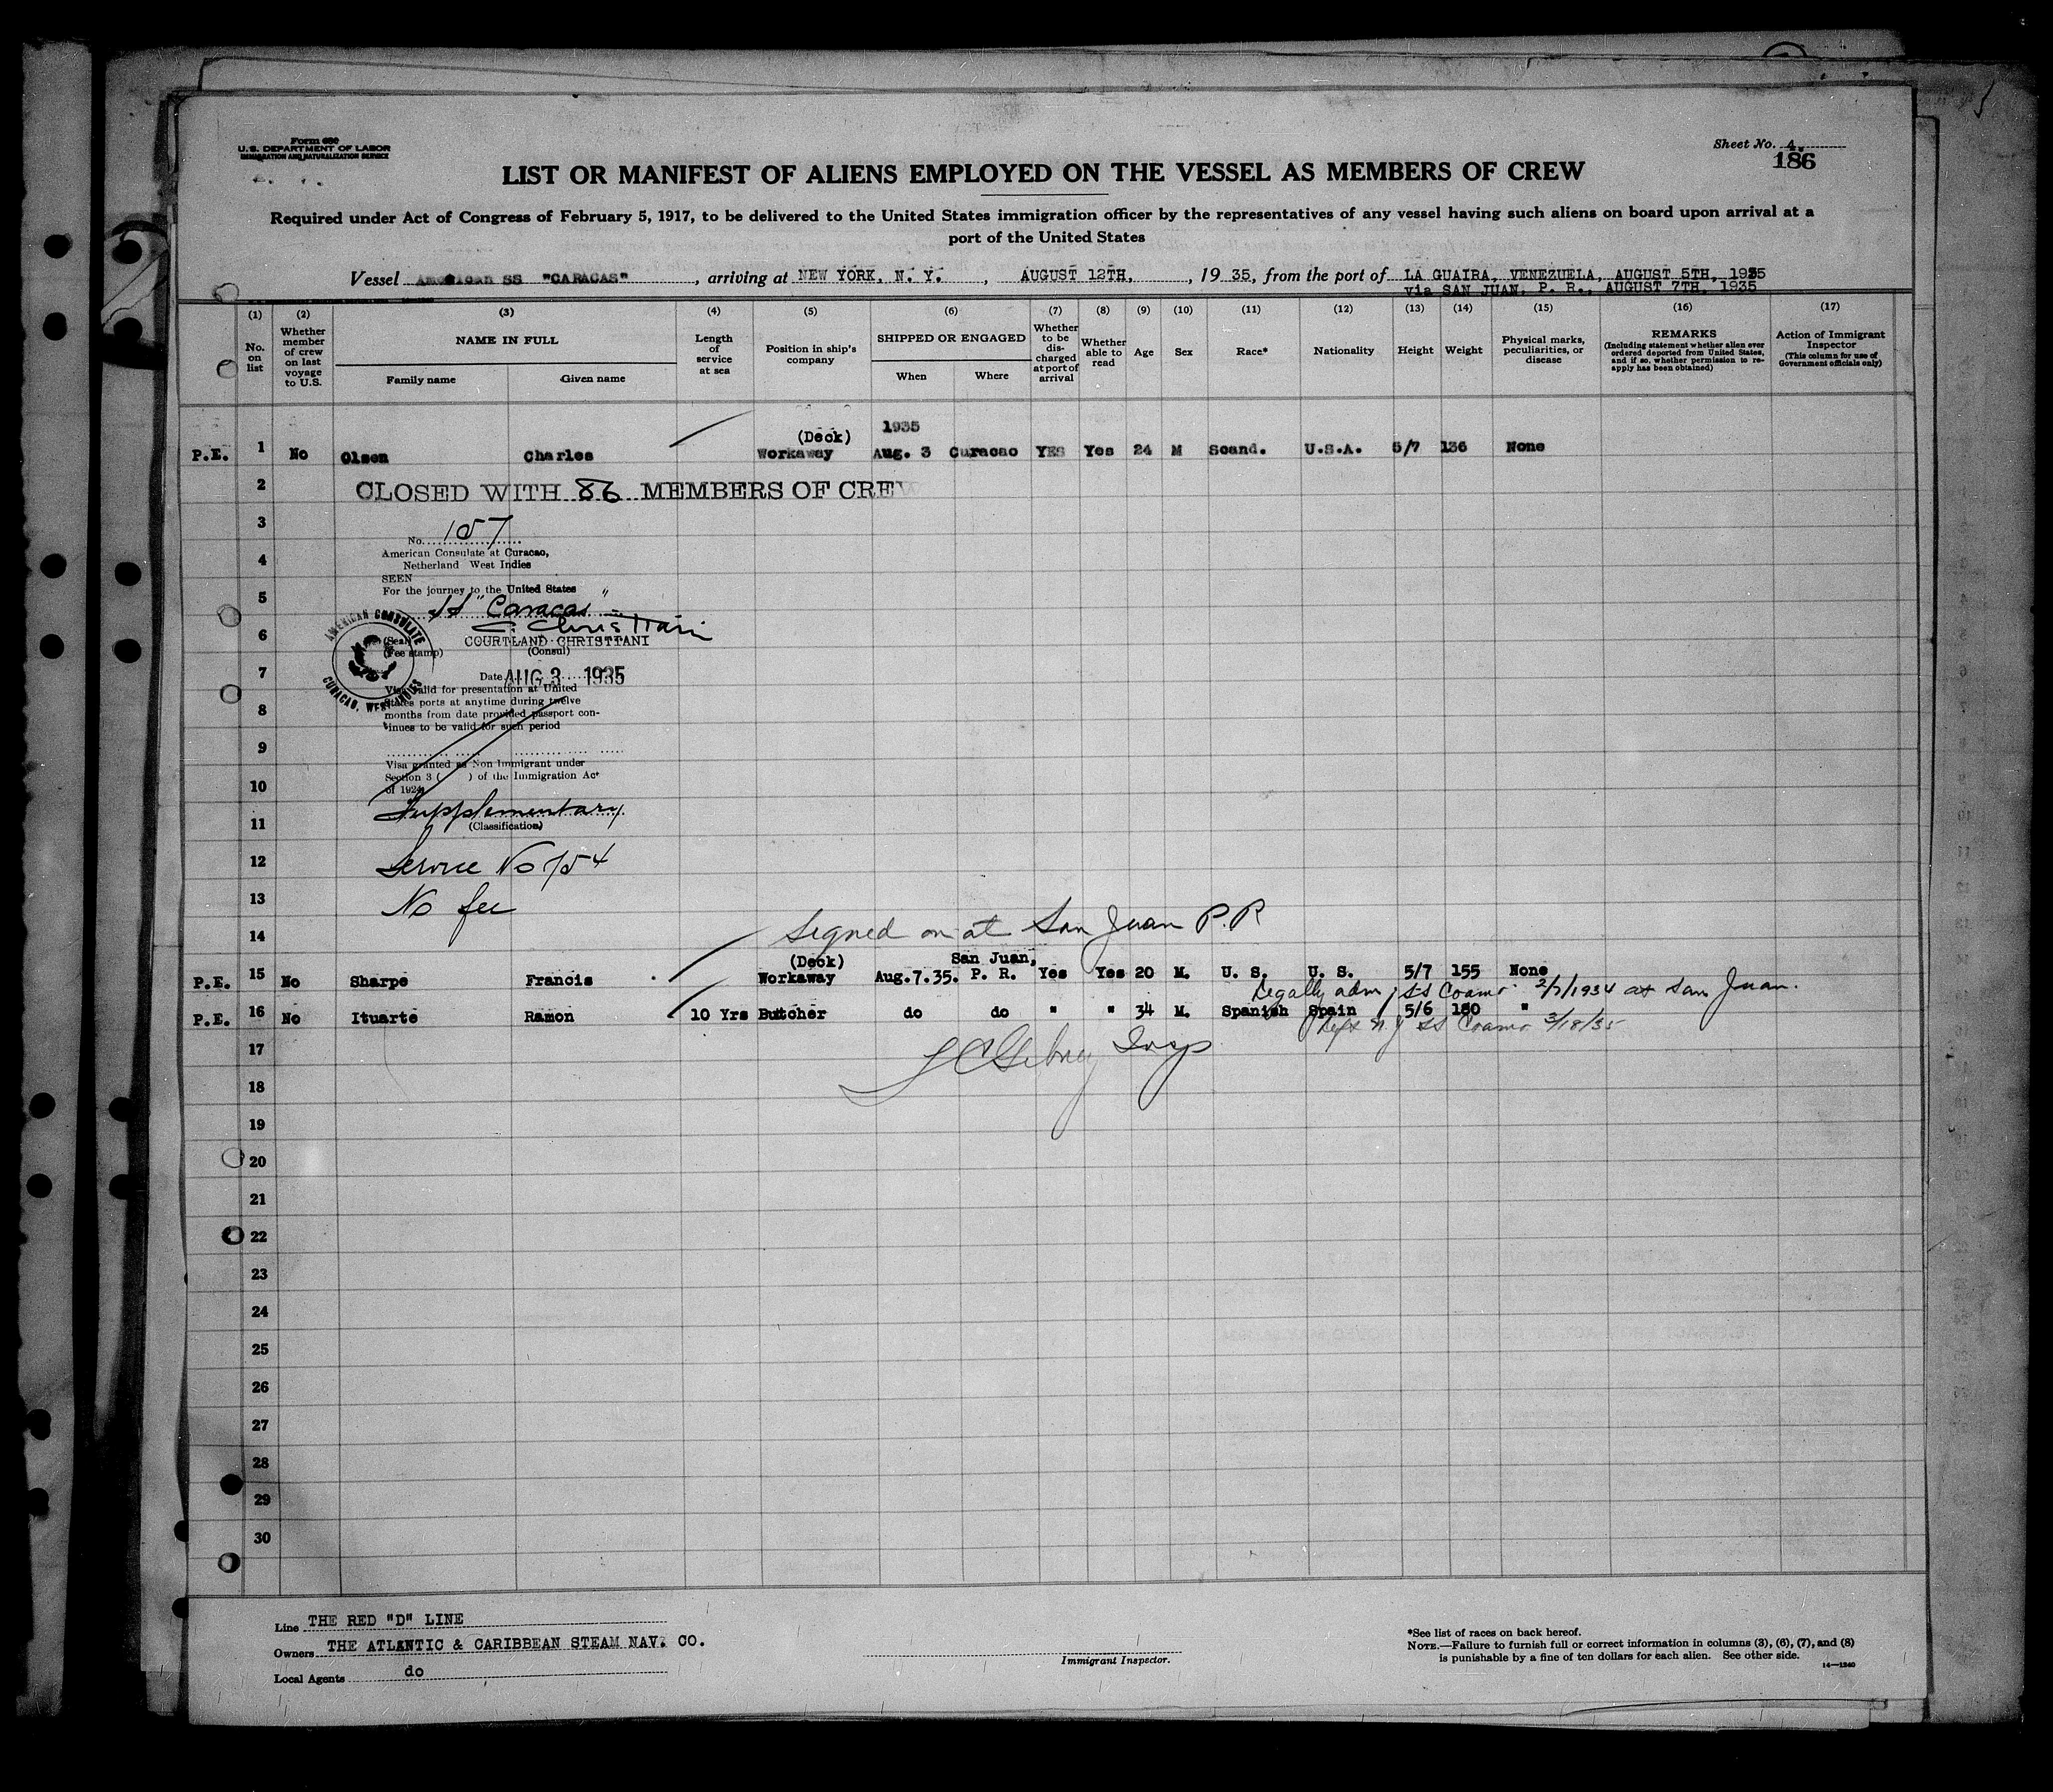 Form 680
U. S. DEPARTMENT OF LABOR
IMMIGRATION AND NATURALIZATION SERVICE
Sheet No. 4.
186
LIST OR MANIFEST OF ALIENS EMPLOYED ON THE VESSEL AS MEMBERS OF CREW
Required under Act of Congress of February 5, 1917, to be delivered to the United States immigration officer by the representatives of any vessel having such aliens on board upon arrival at a
port of the United States
Vessel American SS "CARACAS", arriving at NEW YORK, N. Y., AUGUST 12TH, , 19 35, from the port of LA GUAIRA, VENEZUELA, AUGUST 5TH, 1935
via SAN JUAN, P. R., AUGUST 7TH, 1935
(1) No. on list
(2) Whether member of crew on last voyage to U.S.
(3) NAME IN FULL
Family name Given name
(4) Length of service at sea
(5) Position in ship's company
(6) SHIPPED OR ENGAGED
When Where
(7) Whether to be discharged at port of arrival
(8) Whether able to read
(9) Age
(10) Sex
(11) Race*
(12) Nationality
(13) Height
(14) Weight
(15) Physical marks, peculiarities, or disease
(16) REMARKS
(Including statement whether alien ever ordered deported from United States, and if so, whether permission to reapply has been obtained)
(17) Action of Immigrant Inspector
(This column for use of Government officials only)
(Deck) 1935
P.E. 1 No Olsen Charles Workaway Aug. 3 Curacao YES Yes 24 M Scand. U.S.A. 5/7 136 None
2
CLOSED WITH 86 MEMBERS OF CREW
3
No. 157
American Consulate at Curacao,
4
Netherland West Indies
SEEN
5
For the journey to the United States
SS "Caracas"
C. Christiani
6
(Seal) COURTLAND CHRISTIANI
(Fee stamp) (Consul)
AMERICAN CONSULATE
CURACAO, WEST INDIES
7
Date AUG 3 1935
Visa valid for presentation at United
States ports at anytime during twelve
8
months from date provided passport con-
tinues to be valid for such period
9
Visa granted as Non Immigrant under
Section 3 ( ) of the Immigration Act
10
of 1924
Supplementary
11
(Classification)
12
Service No 754
13
No fee
14
Signed on at San Juan P.R
(Deck) San Juan,
P.E. 15 No Sharpe Francis Workaway Aug.7.35. P. R. Yes Yes 20 M. U. S. U. S. 5/7 155 None
Legally adm SS Coamo 3/7/1934 at San Juan.
P.E. 16 No Ituarte Ramon 10 Yrs Buttcher do do " " 34 M. Spanish Spain 5/6 180 "
SS Coamo 3/18/35
17
Insp
18
19
20
21
22
23
24
25
26
27
28
29
30
Line THE RED "D" LINE
Owners THE ATLANTIC & CARIBBEAN STEAM NAV. CO.
Local Agents do
Immigrant Inspector.
*See list of races on back hereof.
NOTE.—Failure to furnish full or correct information in columns (3), (6), (7), and (8)
is punishable by a fine of ten dollars for each alien. See other side.
14—1240